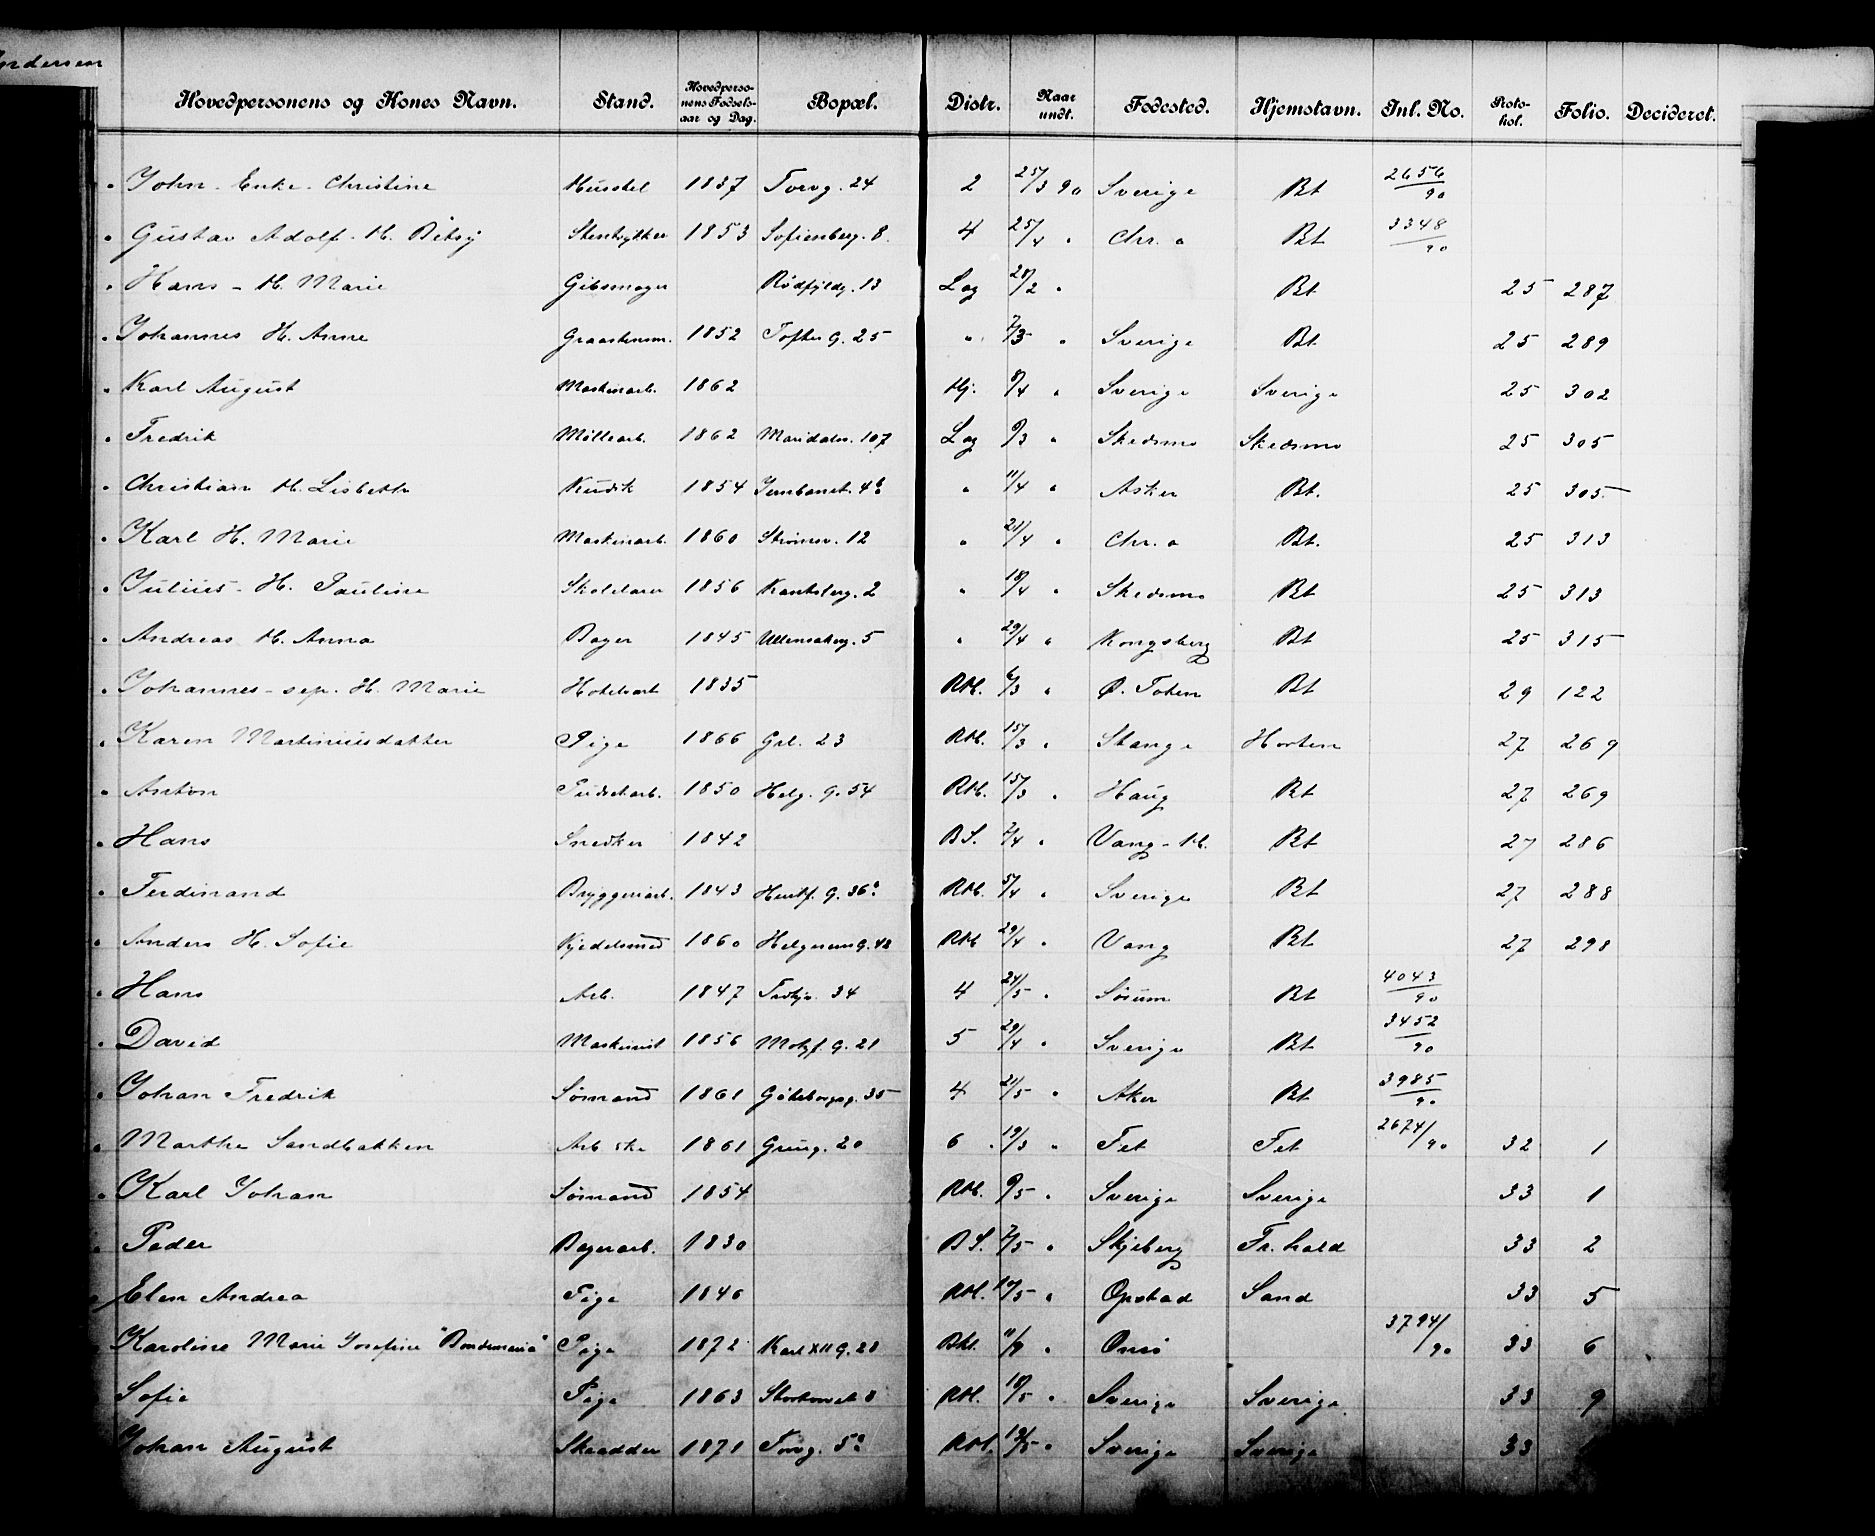 Andersen
Hovedpersonens og Kones Navn. Stand. Hovedperso-nens Fødsels-aar og Dag. Bopæl. Distr. Naar undt. Fødested. Hjemstavn. Inl. No. Proto-kol. Folio. Decideret.
John. Enke. Christine Husstel 1837 Torvg. 24 2 25/3 90 Sverige Bt 2656/90
Gustav Adolf. H. Betsy Stenhugger 1853 Sofienberg. 8. 4 25/4 " Chr. a Bt 3348/90
Hans - H. Marie Gibsmager Rødfyldg. 13 Log 28/2 " Bt 25 287
Johannes H. Anne Graastensm. 1852 Tofte g. 25 " 7/3 " Sverige Bt 25 289
Karl August Maskinarb. 1862 Hj. 8/4 " Sverige Sverige 25 302
Fredrik Møllearb. 1862 Maridalsv. 107 Log 9/3 " Skedsmo Skedsmo 25 305
Christian H. Lisbeth Kudsk 1854 Jernbanet. 4 " 11/4 " Asker Bt. 25 305
Karl H. Marie Maskinarb. 1860 Strømsv. 12 " 21/4 " Chr. a Bt. 25 313
Julius - H. Pauline Skolelærer 1856 2 " 18/4 " Skedsmo Bt 25 313
Andreas H. Anna Bager 1845 Ullensakerg. 5 " 29/4 " Kongsberg Bt 25 315
Johannes - sep. H. Marie Hotelvært 1835 RH. 6/3 " Ø. Toten Bt 29 122
Karen Martiniusdatter Pige 1866 Grl. 23 RH. 15/3 " Stange Horten 27 269
Anton Pudsearb. 1850 Helg. g. 54 RH. 15/3 " Haug Bt 27 269
Hans Snedker 1842 BS. 2/4 " Vang - H. Bt 27 286
Ferdinand Bryggeriarb. 1843 g. 36 RH. 5/4 " Sverige Bt 27 288
Anders H. Sofie Kjedelsmed 1860 Helgesens g. 42 RH 29/4 " Vang Bt 27 298
Hans Arb. 1847 34 4 24/5 " Sørum Bt 4043/90
David Maskinist 1856 Motzf. g. 21 5 29/4 " Sverige Bt 3452/90
Johan Fredrik Sømand 1861 Gøteborgsg. 35 4 21/5 " Aker Bt 3985/90
Marthe Sandbakken Arb ske 1861 Grüng. 20 6 19/3 " Fet Fet 2674/90 32 1
Karl Johan Sømand 1854 RH. 9/5 " Sverige Sverige 33 1
Peder Bagerarb. 1830 BS. 7/5 " Skjeberg Fr. hald 33 2
Elen Andrea Pige 1846 RH. 10/5 " Opstad Sand 33 5
Karoline Marie Josefine "Bondemaria" Pige 1872 Karl XII g. 28 Bkl. 11/9 " Onsø 3794/90 33 6
Sofie Pige 1863 Stortorvet 8 RH. 18/5 " Sverige Sverige 33 9
Johan August Skrædder 1871 Torvg. 5 RH. 13/5 " Sverige Sverige 33